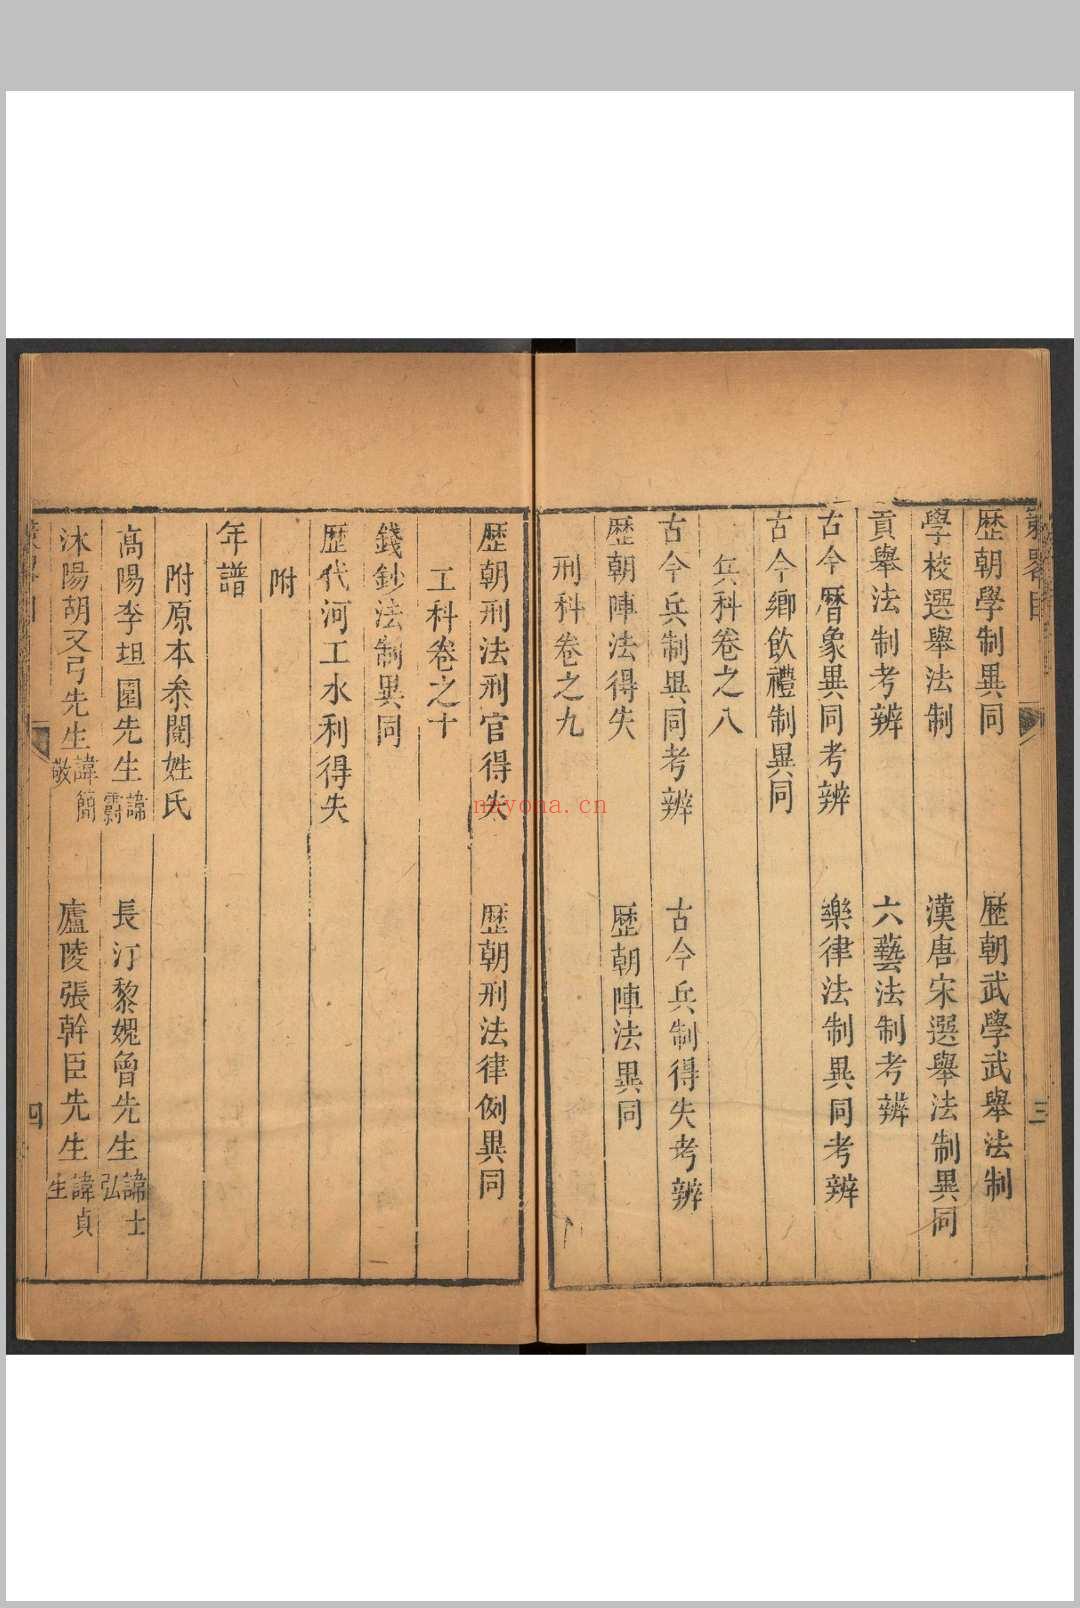 歷朝學制異同 歷朝武學武舉法制
學校選舉法制 漢唐宋選舉法制異同
貢舉法制考辨 六藝法制考辨
古今曆象異同考辨 樂律法制異同考辨
古今鄉飲禮制異同
兵科卷之八
古今兵制異同考辨 古今兵制得失考辨
歷朝陣法得失 歷朝陣法異同
刑科卷之九
歷朝刑法刑官得失 歷朝刑法律例異同
工科卷之十
錢鈔法制異同
歷代河工水利得失
附
年譜
附原本叅閱姓氏
高陽李坦園先生諱霨 長汀黎媿曾先生諱士弘
沭陽胡又弓先生諱簡敬 廬陵張幹臣先生諱貞生
三
四
nayona.cn